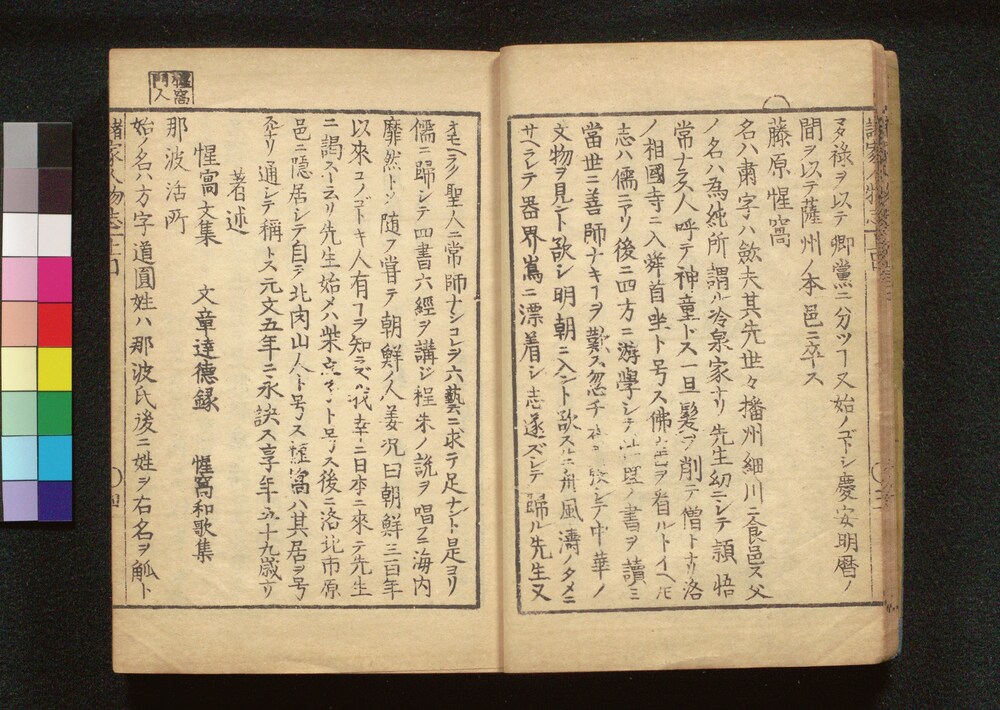 マタ祿ヲ以テ鄉黨ニ分ツヿ又始ノゴトシ慶安明曆ノ
間ヲ以テ薩州ノ本邑ニ卒ス
藤原惺窩
名ハ肅字ハ歛夫其先世々播州細川ニ食邑ス父
ノ名ハ為純所謂ル冷泉家ナリ先生幼ニシテ頴悟
常ナラス人呼テ神童トス一旦髮ヲ削テ僧トナリ洛
ノ相國寺ニ入蕣首坐ト号ス佛書ヲ看ルトイヘ𪜈
志ハ儒ニアリ後ニ四方ニ游學シテ ノ書ヲ讀ミ
當世ニ善師ナキヿヲ歎ス忽チ シテ中華ノ
文物ヲ見ント欲シ明朝ニ入ント欲スルニ舟風濤ノタメニ
サヘラレテ器界嶌ニ漂着シ志遂ズシテ歸ル先生又
オモヘラク聖人ニ常師ナシコレヲ六藝ニ求テ足ナント是ヨリ
儒ニ歸シテ四書六經ヲ講ジ程朱ノ説ヲ唱フ海内
靡然トシテ随フ甞テ朝鮮ノ人姜沆曰朝鮮三百年
以來コノゴトキ人有ヿヲ知ラズ我幸ニ日本ニ來テ先生
ニ謁スト云リ先生始メハ柴立子ト号ス後ニ洛北市原
邑ニ隱居シテ自ラ北肉山人ト号ス惺窩ハ其居ヲ号
スルナリ通シテ稱トス元文五年ニ永訣ス享年五十九歲ナリ
著述
惺窩文集 文章達德録 惺窩和歌集
惺窩門人
那波活所
始ノ名ハ方字道圓姓ハ那波氏後ニ姓ヲ右名ヲ觚ト
諸家人物志上 四